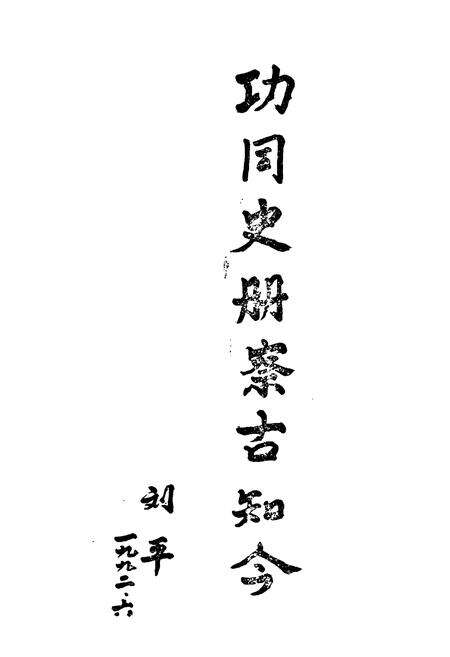 功同史册察古知今
刘平
一九九二·六